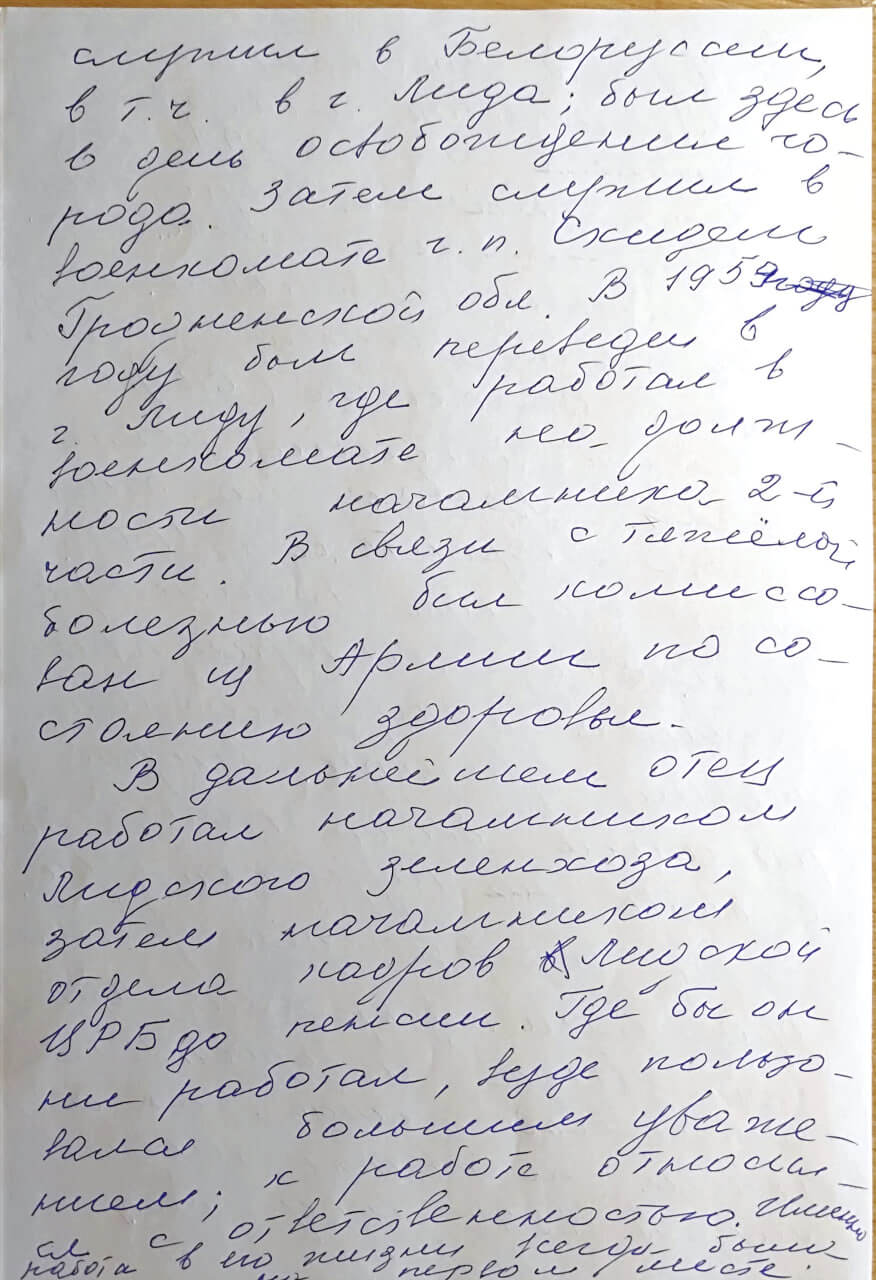 служил в Белоруссии,
в т.ч. в г. Лида; был здесь
в день освобождения го-
рода. Затем служил в
военкомате г.п. Скидель
Гродненской обл. В 1959 году
году был переведен в
г. Лиду, где работал в
военкомате на долж-
ности начальника 2-й
части. В связи с тяжёлой
болезнью был комиссо-
ван из Армии по со-
стоянию здоровья.
В дальнейшем отец
работал начальником
Лидского зеленхоза,
затем начальником
отдела кадров Лидской
ЦРБ до пенсии. Где бы он
ни работал, везде пользо-
вался большим уваже-
нием; к работе относил-
ся с ответственностью. Именно
работа в его жизни всегда была
на первом месте.